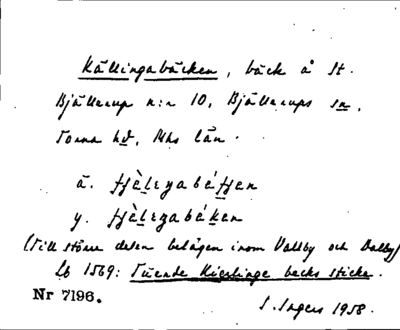 Källingabäcken, bäck å St.
Bjällerup n:r 10, Bjällerups sn,
Torna hd, Mhs län.
ä.
y.
(Till större delen belägen inom Vallby och Dalby)
Lb 1569: Tuende Kierlinge becks sticke.
Nr 7196.
S. Ingers 1958.